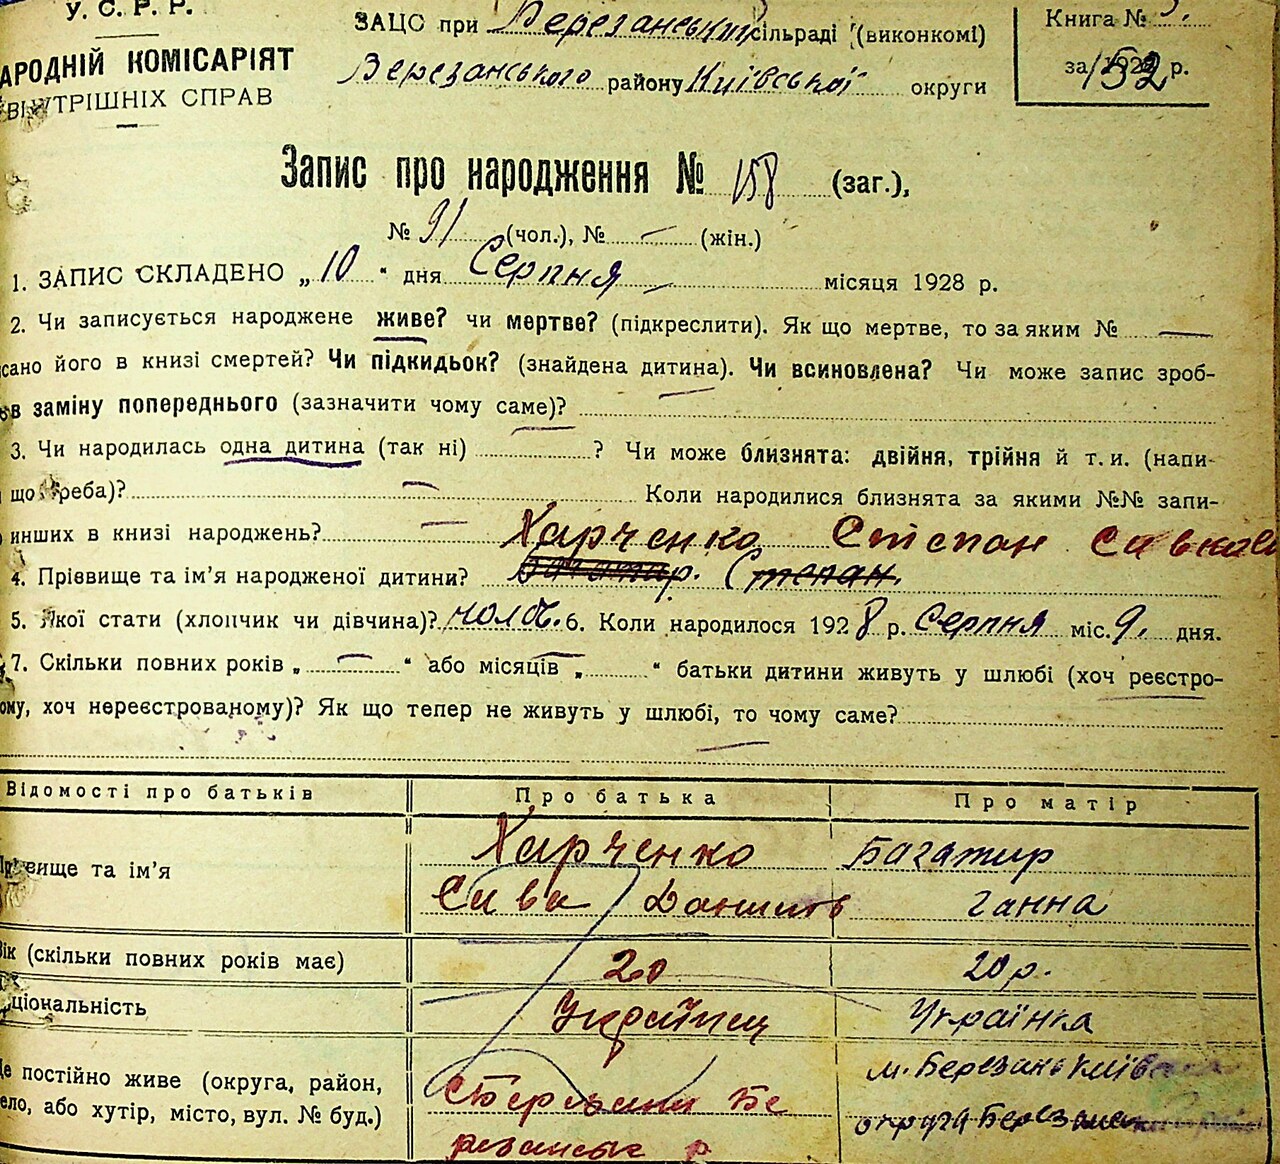 У. С. Р. Р.
АРОДНІЙ КОМІСАРІЯТ
ВНУТРІШНІХ СПРАВ
ЗАЦС при Березанській сільраді (виконкомі)
Березанського району Київської округи
Книга №
за 192 р.
Запис про народження № 158 (заг.),
№ 91 (чол.), № — (жін.)
1. ЗАПИС СКЛАДЕНО „10“ дня Серпня місяця 1928 р.
2. Чи записується народжене живе? чи мертве? (підкреслити). Як що мертве, то за яким № —
сано його в книзі смертей? Чи підкидьок? (знайдена дитина). Чи всиновлена? Чи може запис зроб-
в заміну попереднього (зазначити чому саме)?
3. Чи народилась одна дитина (так ні) ? Чи може близнята: двійня, трійня й т. и. (напи-
що треба)? Коли народилися близнята за якими №№ запи-
инших в книзі народжень?
Харченко Степан
4. Прізвище та ім’я народженої дитини? Степан.
5. Якої стати (хлопчик чи дівчина)? чолов. 6. Коли народилося 1928 р. Серпня міс. 9. дня.
7. Скільки повних років „ — “ або місяців „ — “ батьки дитини живуть у шлюбі (хоч реєстро-
ому, хоч нереєстрованому)? Як що тепер не живуть у шлюбі, то чому саме?
Відомості про батьків Про батька Про матір
вище та ім’я
Харченко Багатир
Сава Ганна
Вік (скільки повних років має) 20 20 р.
ціональність Українец Українка
Де постійно живе (округа, район,
ело, або хутір, місто, вул. № буд.)
м. Березань Київ
Бе
округа
р